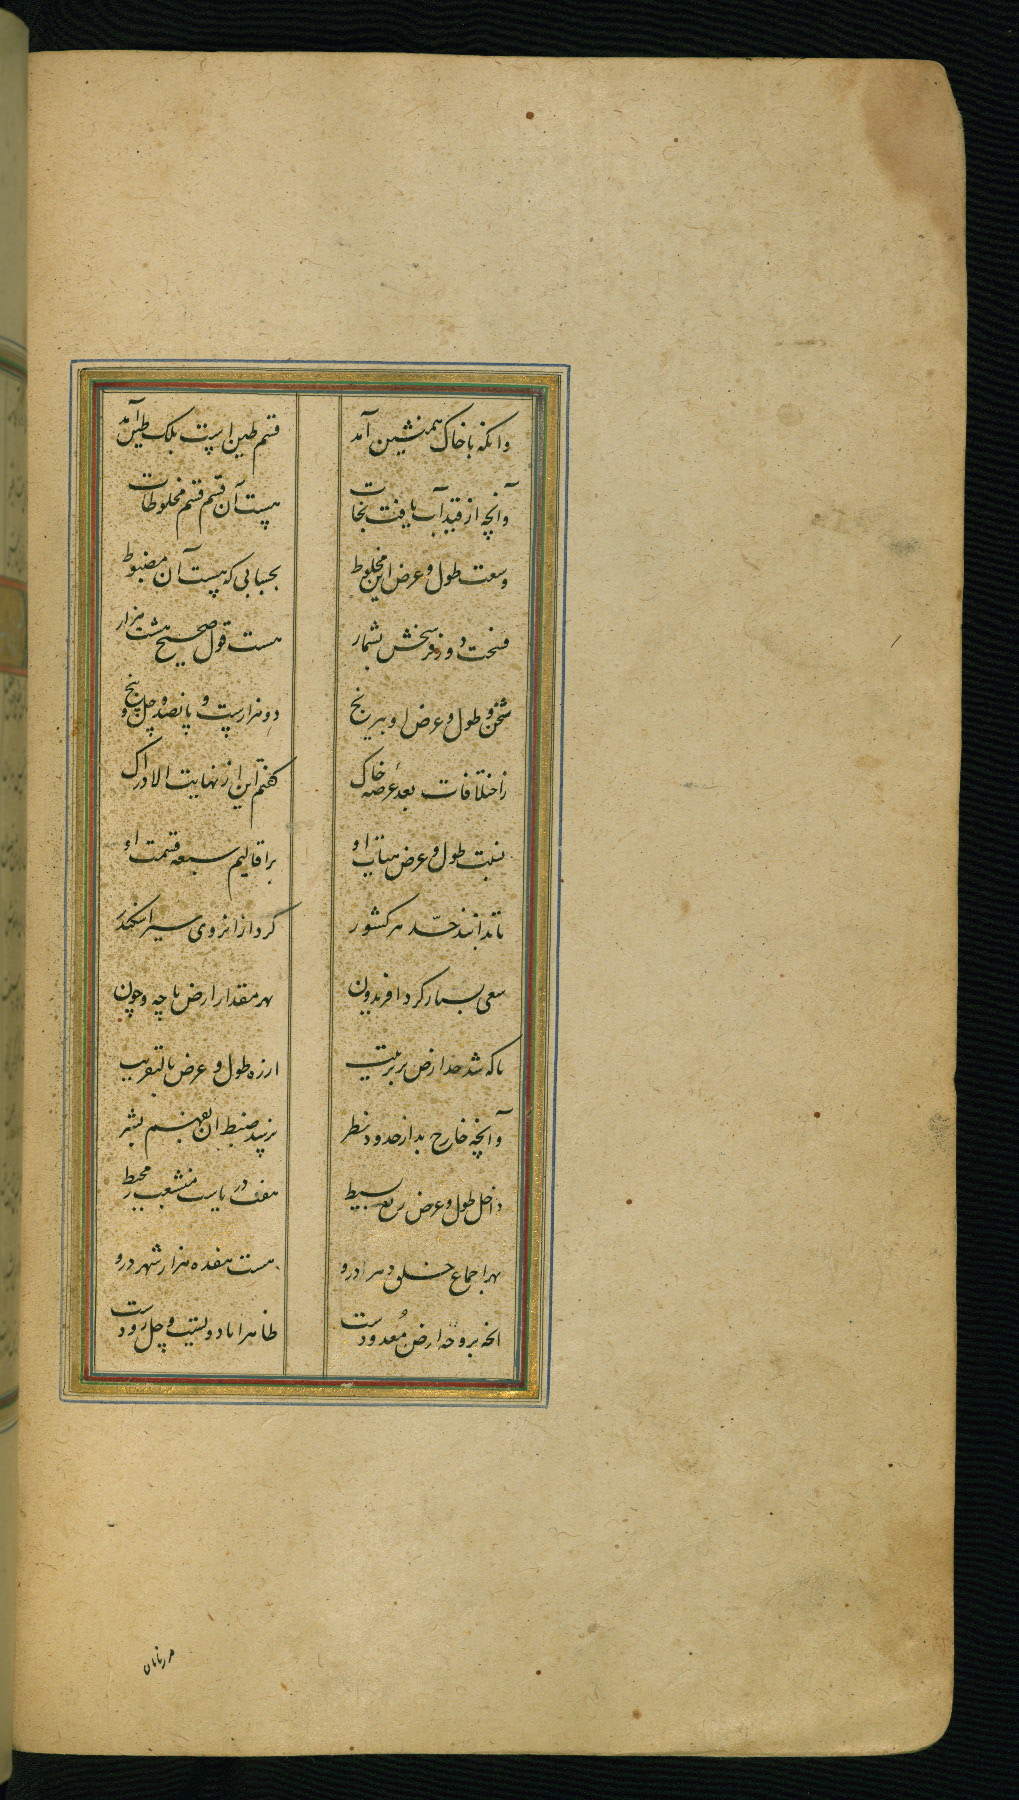 وانکه با خاک همنشین آمد قسم طین است بلک طین آمد
وآنچه از قید آب یافت نجات هست آن قسم قسم مخلوطات
وسعت طول و عرض این مخلوط بحسابی که هست آن مضبوط
فسحت دور فرسخش بشمار هست قول صحیح هشت هزار
ثخن و طول و عرض او بی رنج دو هزارست و پانصد و چل و پنج
ز اختلافات بعد عرصه خاک گفتم این از نهایت الادراک
نسبت طول و عرض هیأت او بر اقالیم سبعه قسمت او
تا ندانند حد هر کشور کرد از انروی سیر اسکندر
سعی بسیار کرد افریدون بهر مقدار ارض با چه و چون
تا که شد حد ارض بر تربیت از ره طول و عرض بالتقریب
وآنچه خارج بد از حدود نظر نرسید ضبط آن بفهم بشر
داخل طول و عرض ربع بسیط هفت دریاست منشعب ز محیط
بهر اجماع خلق دهر درو هست هفده هزار شهر درو
انچه بر وجه ارض معدودست ظاهرا با دویست و چل رودست
هر زمان